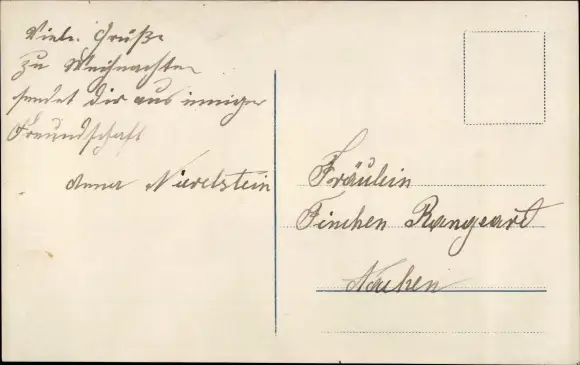 Viele Grüße
zu Weihnachten
sendet dir aus inniger
Freundschaft
Anna Nierelstein
Fräulein
Finchen Rangeart
Aachen